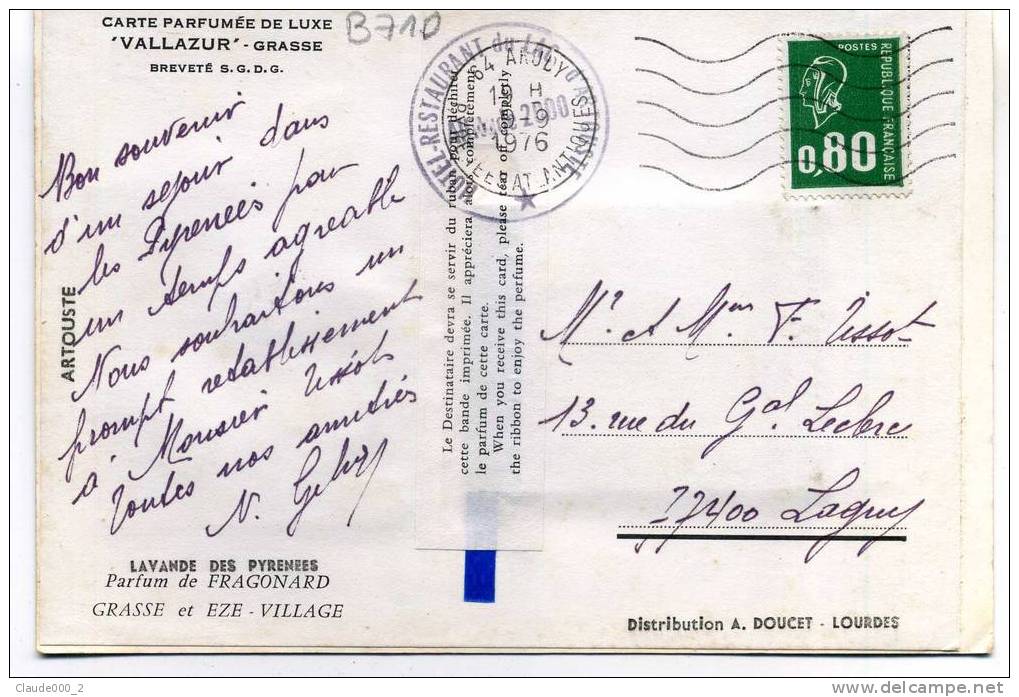 CARTE PARFUMÉE DE LUXE
'VALLAZUR' - GRASSE
BREVETÉ S.G.D.G.
B710
Bon souvenir
d'un séjour dans
les Pyrenées pour
un temps agreable
Nous souhaitons un
prompt retablissement
à Monsieur Tissot
Toutes nos amitiés
N.
ARTOUSTE
LAVANDE DES PYRENEES
Parfum de FRAGONARD
GRASSE et EZE - VILLAGE
Le Destinataire devra se servir du ruban pour déchirer
cette bande imprimée. Il appréciera alors complètement
le parfum de cette carte.
When you receive this card, please tear off completly
the ribbon to enjoy the perfume.
HOTEL-RESTAURANT du LAC d'ARTOUSTE
2000
64 ARUDY
9-9
1976
ATLANTIQUES
POSTES
REPUBLIQUE FRANÇAISE
0,80
Mr et Mme F. Tissot
13 rue du Gal Leclerc
77400 Lagny
Distribution A. DOUCET - LOURDES
Claude000_2
www.delcampe.net